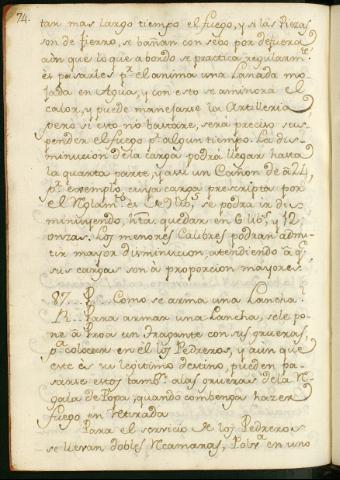 74.
tan mas largo tiempo el fuego, y si las Piezas
son de fierro, se bañan con sebo por defuera
aũn que lo que a bordo se practica regularm.te
es pasarles p.r el anima una Lanada mo=
jada en Agua, y con esto se aminora el
calor, y puede manejarse la Artilleria
pero si esto no bastare, será preciso sus
pender el fuego p.r algun tiempo. La dis=
minucion de la carga podrá llegar hasta
la quarta parte, y assi un Cañon de â 24,
p.r exemplo, cuya carga prescripta por
el Reglam.to es 8 lib.s, se podrá ir dis
minuyendo, hta quedar en 6 lib.s y 12
onzas. Los menores Calibres podrán admi=
tir mayor disminucion, atendiendo â q.e
sus cargas son â proporcion mayores.
87. P. Como se arma una Lancha?
R. Para armar una Lancha, se le po=
ne â Proa un dragante con sus grueras
p.a colocar en él los Pedreros, y aũn que
este es su legitimo destino, pueden pa=
sarse estos tamb.n a las grueras de la Re
gala de Popa, quando combenga hazer
fuego en retirada
Para el servicio de los Pedreros
se llevan dobles Recamaras, Polv.a en uno